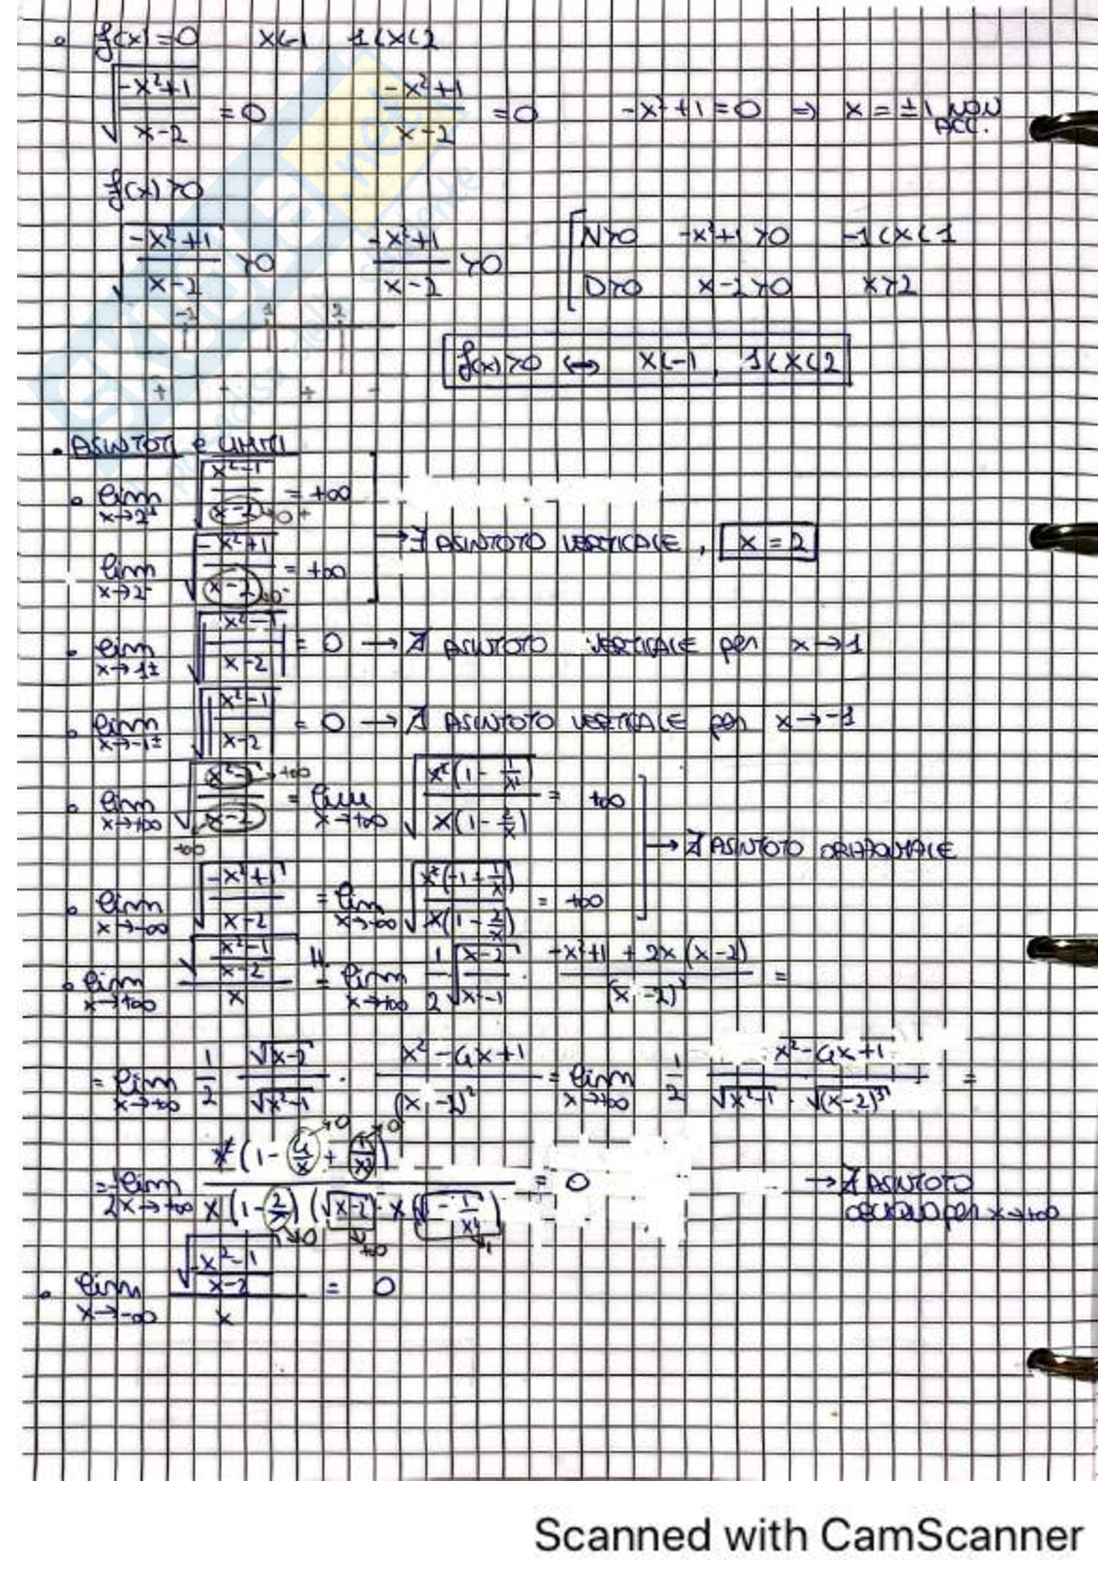 • f(x)=0 x<-1 1<x<2
√((-x²+1)/(x-2)) = 0 (-x²+1)/(x-2) = 0 -x²+1=0 ⇒ x = ±1 NON ACC.
f(x)>0
√((-x²+1)/(x-2)) >0 (-x²+1)/(x-2) >0 [ N>0 -x²+1>0 -1<x<1
D>0 x-2>0 x>2
-1 1 2
f(x)>0 ⇔ x<-1, 1<x<2
+ - + -
• ASINTOTI e LIMITI
• lim x→2⁺ √((x²-1)/(x-2)) = +∞ →0⁺
→ ∃ ASINTOTO VERTICALE, x=2
lim x→2⁻ √((-x²+1)/(x-2)) = +∞ →0⁻
• lim x→1± √|(x²-1)/(x-2)| = 0 → ∄ ASINTOTO VERTICALE per x→1
• lim x→-1± √|(x²-1)/(x-2)| = 0 → ∄ ASINTOTO VERTICALE per x→-1
• lim x→+∞ √((x²-1)/(x-2)) = lim x→+∞ √(x²(1-1/x²)/x(1-2/x)) = +∞
→ ∄ ASINTOTO ORIZZONTALE
• lim x→-∞ √((-x²+1)/(x-2)) = lim x→-∞ √(x²(-1+1/x)/x(1-2/x)) = +∞
• lim x→+∞ √((x²-1)/(x-2))/x =ᴴ lim x→+∞ 1/2 √((x-2)/(x²-1)) · (-x²+1+2x(x-2))/(x-2)² =
= lim x→+∞ 1/2 √(x-2)/√(x²-1) · (x²-4x+1)/(x-2)² = lim x→+∞ 1/2 (x²-4x+1)/(√(x²-1) · √((x-2)³)) =
= 1/2 lim x→+∞ x²(1-4/x+1/x²)/(x(1-2/x)(√(x-2) · x√(1-1/x²))) = 0 → ∄ ASINTOTO
OBLIQUO per x→+∞
• lim x→-∞ √((-x²-1)/(x-2))/x = 0
Scanned with CamScanner